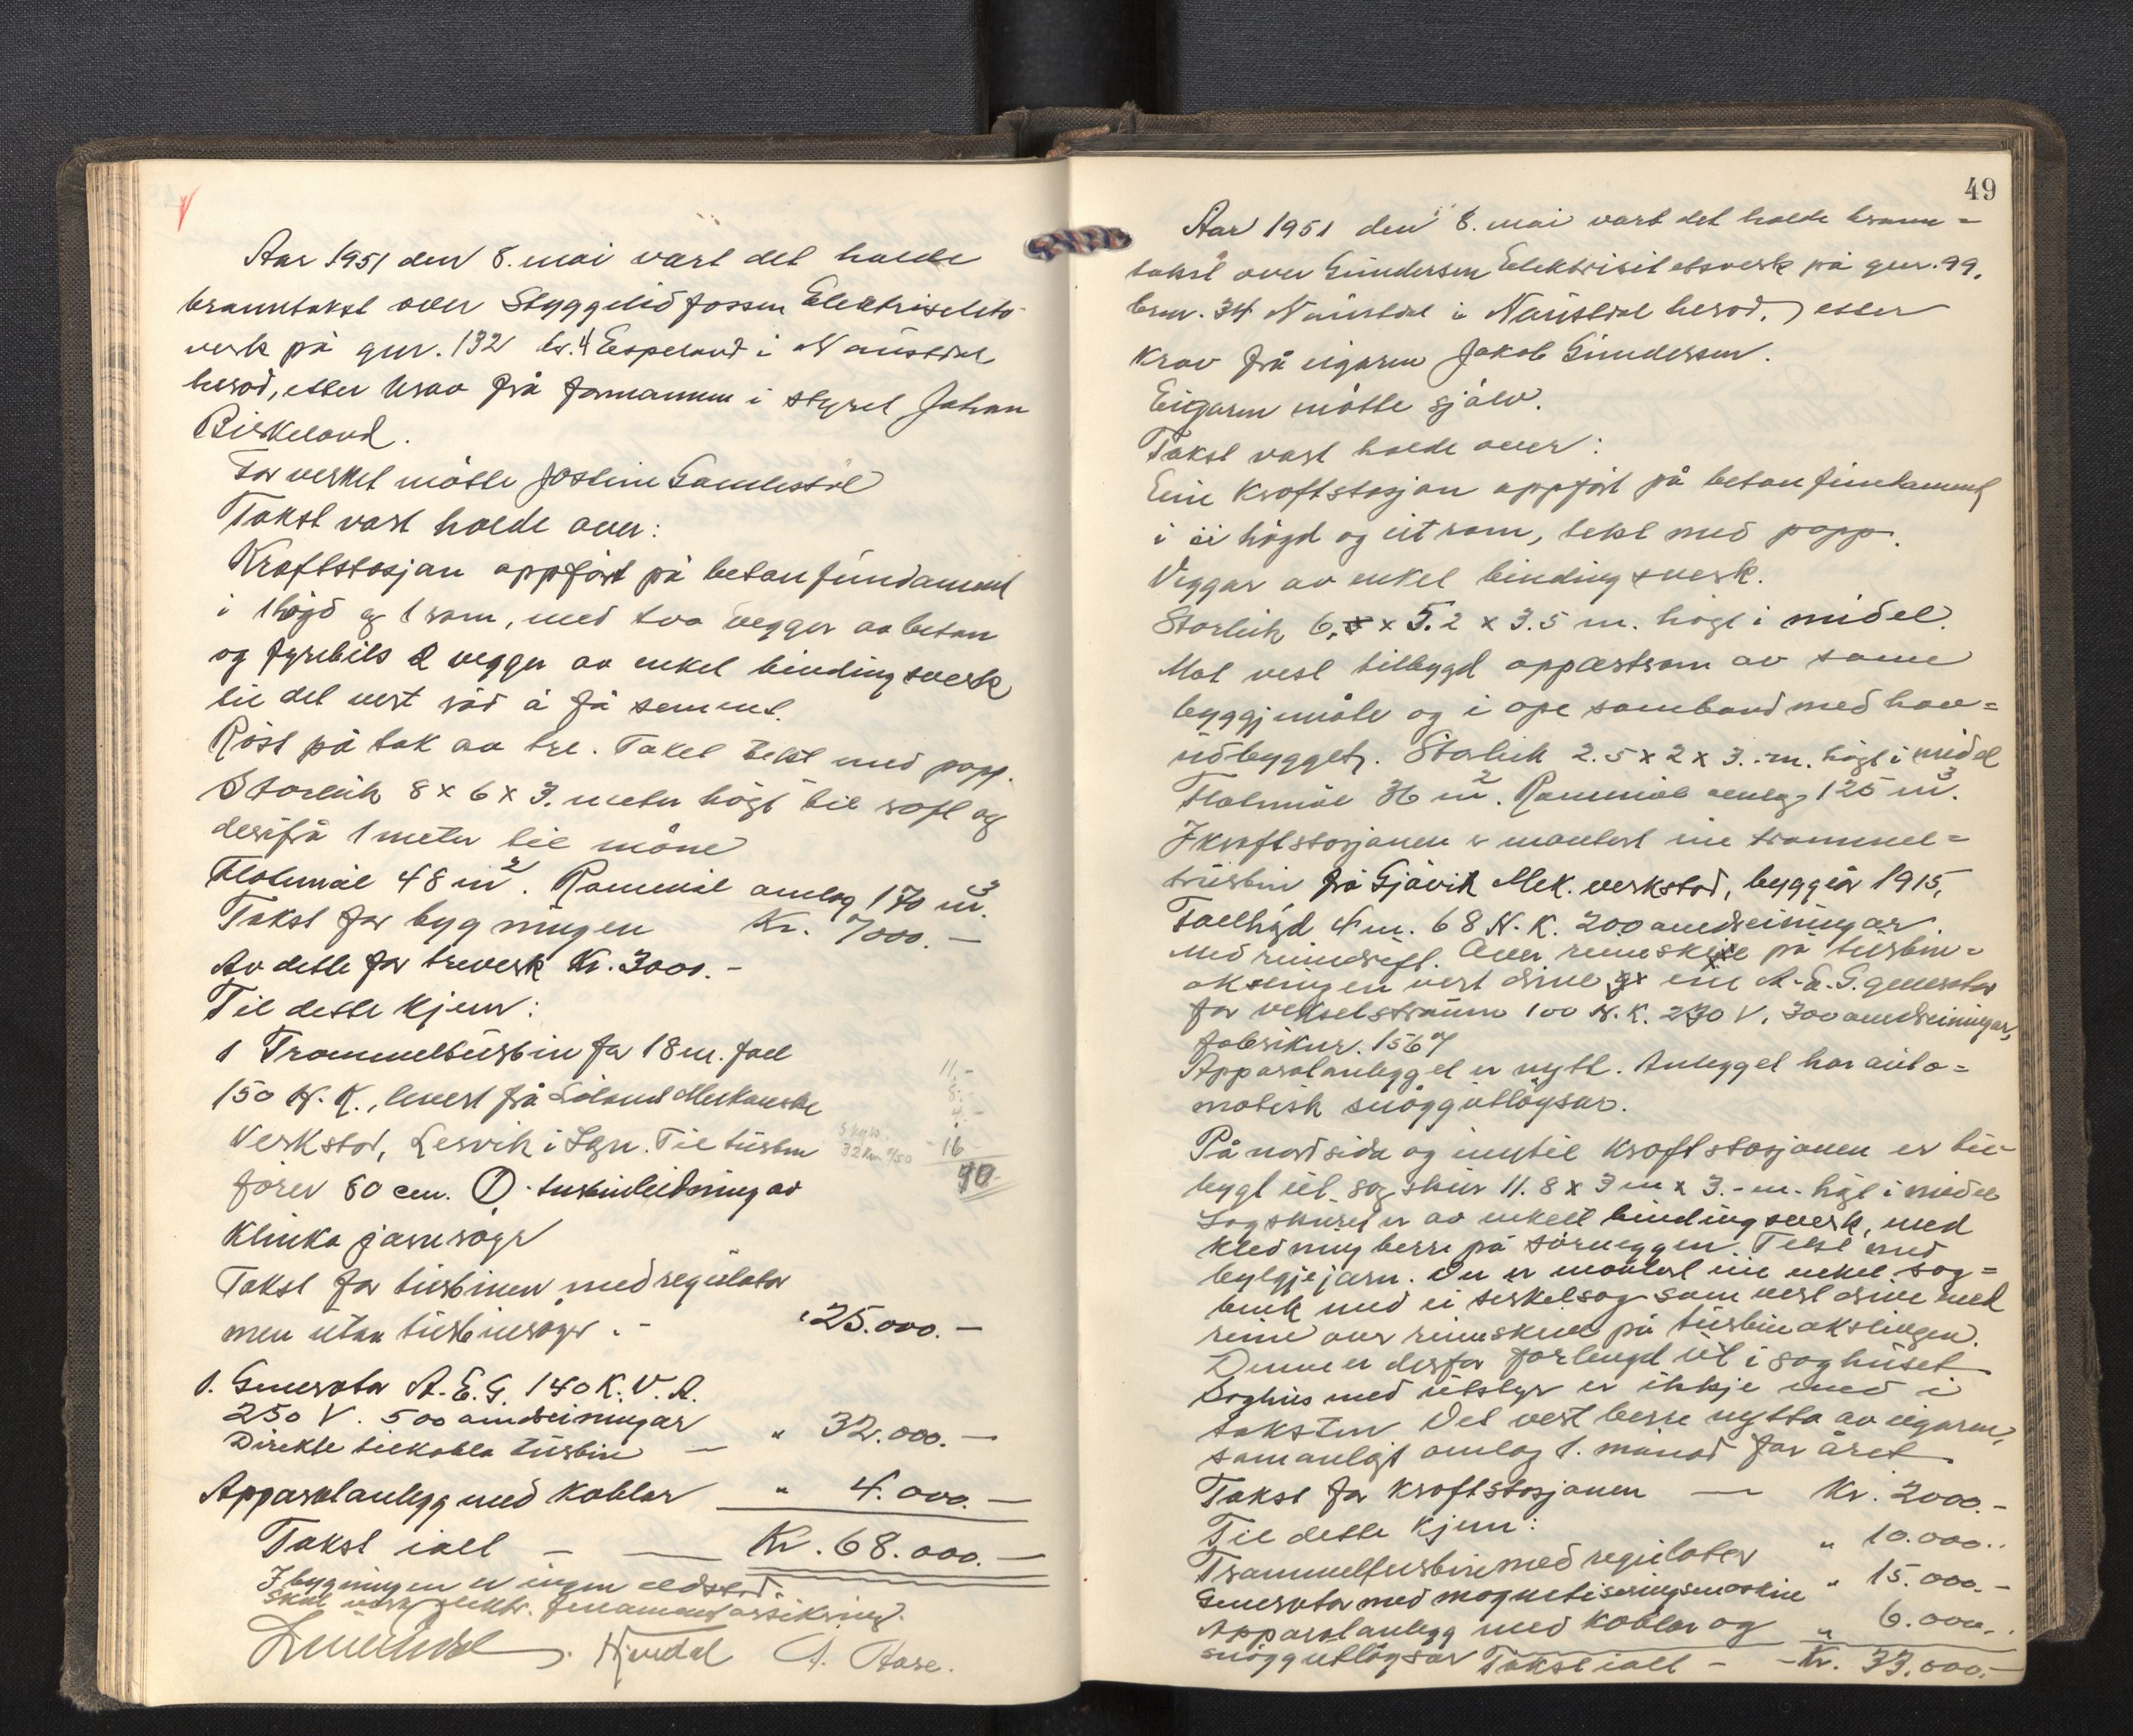 Aar 1951 den 8. mai vart det halde
branntakst over Styggelidfossen Elektrisitets-
verk på gnr. 132 br. 4 Espeland i Naustdal
herad, etter krav frå formannen i styret Johan
Birkeland.
For verket møtte Jostein Gamlestøl
Takst vart halde over:
Kraftstasjon oppført på betonfundament
i 1 høgd og 1 rom, med two vegger av beton
og fyrebils 2 vegger av enkel bindingsverk
til det vert råd å få sement.
Røst på tak av tre. Taket tekt med papp.
Storleik 8 x 6 x 3. meter høgt til raft og
derifrå 1 meter til møne
Flatemål 48 m². Rommål omlag 170 m³.
Takst for bygningen Kr. 7000.-
Av dette for treverk Kr. 3000.-
Til dette kjem:
1 Trommelturbin for 18 m. fall
150 H.K., levert frå Søland Mekaniske
Verkstad, Leirvik i Sogn. Til turbin
fører 80 cm. turbinleidning av
Klinka jarnrøyr
Takst for turbinen med regulator
men utan turbinrøyr.- " 25.000.-
1. Generator A.E.G. 140 K.V.A.
250 V. 500 omdreiningar
Direkte tilkobla turbin — " 32.000.-
Apparatanlegg med kablar — " 4.000.-
Takst ialt — — Kr. 68.000.-
I bygningen er ingen eldstad.
Hjindal A. Aase.
11.-
16
32 km
49
Aar 1951 den 8. mai vart det halde brann=
takst over Gundersen Elektrisitetsverk på gnr. 99,
brn. 34 Naustdal i Naustdal herad, etter
krav frå eigaren Jakob Gundersen.
Eigaren møtte sjølv.
Takst vart halde over:
Ein Kraftstasjon oppført på beton fundament
i ei høgd og eit rom, tekt med papp.
Veggar av enkel bindingsverk.
Storleik 6,5 x 5.2 x 3.5 m. høgt i midel.
Mot vest tilbygd apparatrom av same
byggjemåte og i ope samband med hov=
udbygget. Storleik 2.5 x 2 x 3.-m. høgt i midel
Flatemål 36 m². Rommål omlag 125 m³.
I kraftstasjonen er montert ein trommel=
turbin frå Gjøvik Mek. verkstad, byggeår 1915,
Fallhøgd 4 m. 68 H.K. 200 omdreiningar.
Med reimdrift. Over reimskive på turbin=
akslingen vert drive ein A.E.G. generator
for vekselstraum 100 H.K. 230 V, 300 omdreiningar,
fabriknr. 1567
Apparatanlegget er nytt. Anlegget har auto=
matisk snøggutløysar.
På nordsida og inntil kraftstasjonen er til-
bygt eit sagskur 11.8 x 3 m x 3.-m. høgt i midel
Sagskuret er av enkelt bindingsverk, med
kledning berre på sørveggen. Tekt med
bylgjejarn. Der er montert ein enkel sag=
benk med ei sirkelsag som vert drive med
reim over reimskive på turbinakslingen.
Denne er derfor forlengd ut i saghuset
Saghus med utstyr er ikkje med i
taksten Det vert berre nytta av eigaren,
samanlagt omlag 1. månad for året
Takst for kraftstasjonen — Kr. 2000.-
Til dette kjem:
Trommelturbin med regulator " 10.000..
Generator med magnetiseringsmaskin " 15.000.-
Apparatanlegg med kablar og
snøggutløysar " 6.000.-
Takst ialt - - Kr. 33.000.-